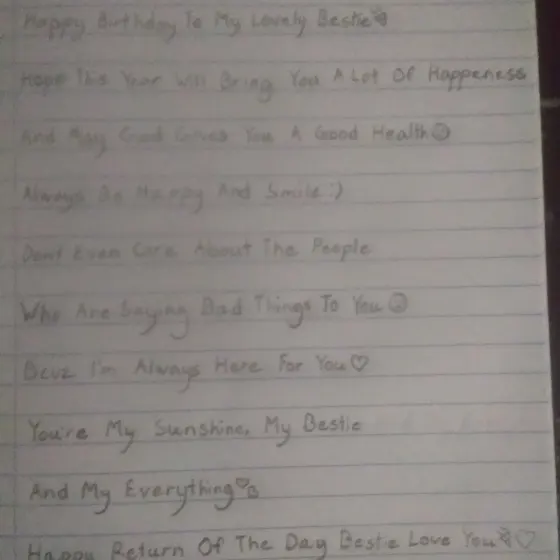 Happy Birthday To My Lovely Bestie
Hope This Year Will Bring You A Lot Of Happeness
And May God Gives You A Good Health☺
Always Be Happy And Smile:)
Dont Even Care About The People
Who Are Saying Bad Things To You☹
Bcuz I'm Always Here For You♡
You're My Sunshine, My Bestie
And My Everything♡
Happy Return Of The Day Bestie Love You♡